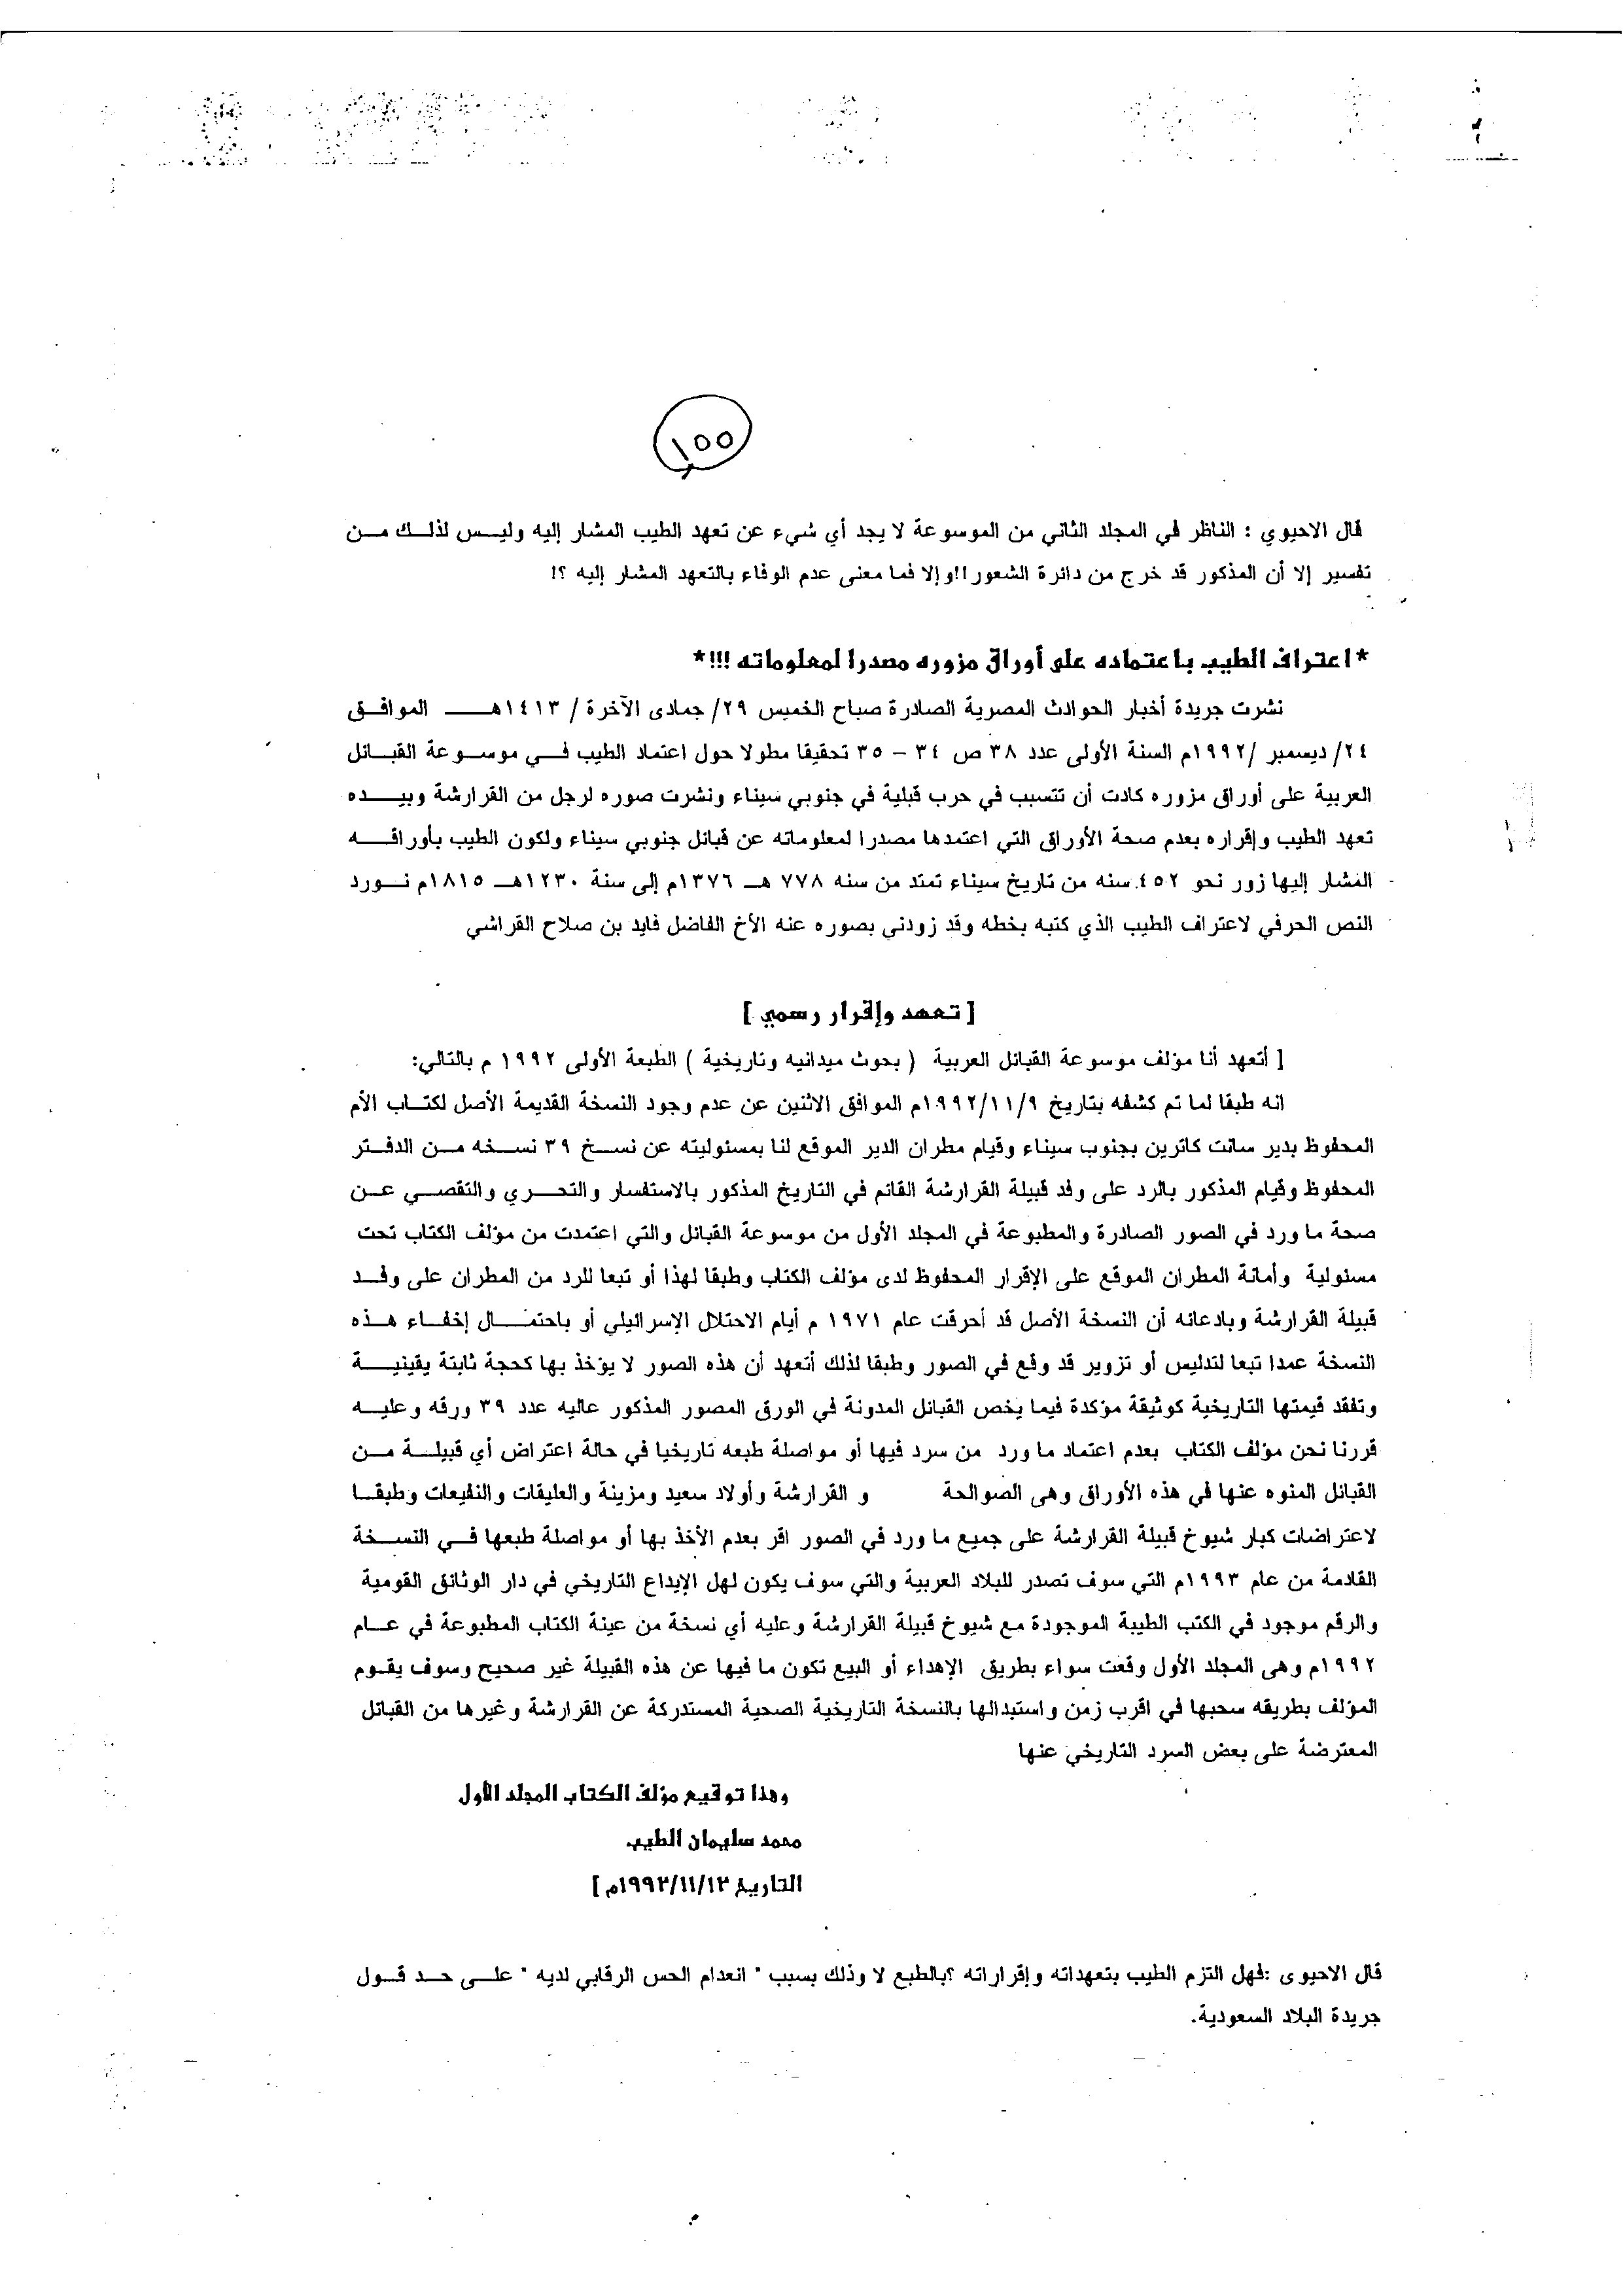 ١٥٥
قال الاحيوي : الناظر في المجلد الثاني من الموسوعة لا يجد أي شيء عن تعهد الطيب المشار إليه وليس لذلك من
تفسير إلا أن المذكور قد خرج من دائرة الشعور!!وإلا فما معنى عدم الوفاء بالتعهد المشار إليه ؟!
*اعتراف الطيب باعتماده على أوراق مزوره مصدرا لمعلوماته !!!*
نشرت جريدة أخبار الحوادث المصرية الصادرة صباح الخميس ٢٩/ جمادى الآخرة / ١٤١٣هـ الموافق
٢٤/ ديسمبر /١٩٩٢م السنة الأولى عدد ٣٨ ص ٣٤ – ٣٥ تحقيقا مطولا حول اعتماد الطيب في موسوعة القبائل
العربية على أوراق مزوره كادت أن تتسبب في حرب قبلية في جنوبي سيناء ونشرت صوره لرجل من القرارشة وبيده
تعهد الطيب وإقراره بعدم صحة الأوراق التي اعتمدها مصدرا لمعلوماته عن قبائل جنوبي سيناء ولكون الطيب بأوراقه
المشار إليها زور نحو ٤٥٢ سنه من تاريخ سيناء تمتد من سنه ٧٧٨ هـ ١٣٧٦م إلى سنة ١٢٣٠هـ ١٨١٥م نورد
النص الحرفي لاعتراف الطيب الذي كتبه بخطه وقد زودني بصوره عنه الأخ الفاضل فايد بن صلاح القراشي
[ تعهد وإقرار رسمي ]
[ أتعهد أنا مؤلف موسوعة القبائل العربية ( بحوث ميدانيه وتاريخية ) الطبعة الأولى ١٩٩٢ م بالتالي:
انه طبقا لما تم كشفه بتاريخ ١٩٩٢/١١/٩م الموافق الاثنين عن عدم وجود النسخة القديمة الأصل لكتاب الأم
المحفوظ بدير سانت كاترين بجنوب سيناء وقيام مطران الدير الموقع لنا بمسئوليته عن نسخ ٣٩ نسخه من الدفتر
المحفوظ وقيام المذكور بالرد على وفد قبيلة القرارشة القائم في التاريخ المذكور بالاستفسار والتحري والتقصي عن
صحة ما ورد في الصور الصادرة والمطبوعة في المجلد الأول من موسوعة القبائل والتي اعتمدت من مؤلف الكتاب تحت
مسئولية وأمانة المطران الموقع على الإقرار المحفوظ لدى مؤلف الكتاب وطبقا لهذا أو تبعا للرد من المطران على وفد
قبيلة القرارشة وبادعائه أن النسخة الأصل قد أحرقت عام ١٩٧١ م أيام الاحتلال الإسرائيلي أو باحتمال إخفاء هذه
النسخة عمدا تبعا لتدليس أو تزوير قد وقع في الصور وطبقا لذلك أتعهد أن هذه الصور لا يؤخذ بها كحجة ثابتة يقينية
وتفقد قيمتها التاريخية كوثيقة مؤكدة فيما يخص القبائل المدونة في الورق المصور المذكور عاليه عدد ٣٩ ورقه وعليه
قررنا نحن مؤلف الكتاب بعدم اعتماد ما ورد من سرد فيها أو مواصلة طبعه تاريخيا في حالة اعتراض أي قبيلة من
القبائل المنوه عنها في هذه الأوراق وهى الصوالحة و القرارشة وأولاد سعيد ومزينة والعليقات والنفيعات وطبقا
لاعتراضات كبار شيوخ قبيلة القرارشة على جميع ما ورد في الصور اقر بعدم الأخذ بها أو مواصلة طبعها في النسخة
القادمة من عام ١٩٩٣م التي سوف تصدر للبلاد العربية والتي سوف يكون لهل الإيداع التاريخي في دار الوثائق القومية
والرقم موجود في الكتب الطيبة الموجودة مع شيوخ قبيلة القرارشة وعليه أي نسخة من عينة الكتاب المطبوعة في عام
١٩٩٢م وهى المجلد الأول وقعت سواء بطريق الإهداء أو البيع تكون ما فيها عن هذه القبيلة غير صحيح وسوف يقوم
المؤلف بطريقه سحبها في اقرب زمن واستبدالها بالنسخة التاريخية الصحية المستدركة عن القرارشة وغيرها من القبائل
المعترضة على بعض السرد التاريخي عنها
وهذا توقيع مؤلف الكتاب المجلد الأول
محمد سليمان الطيب
التاريخ ١٩٩٢/١١/١٣م ]
قال الاحيوى :فهل التزم الطيب بتعهداته وإقراراته ؟بالطبع لا وذلك بسبب " انعدام الحس الرقابي لديه " على حد قول
جريدة البلاد السعودية.